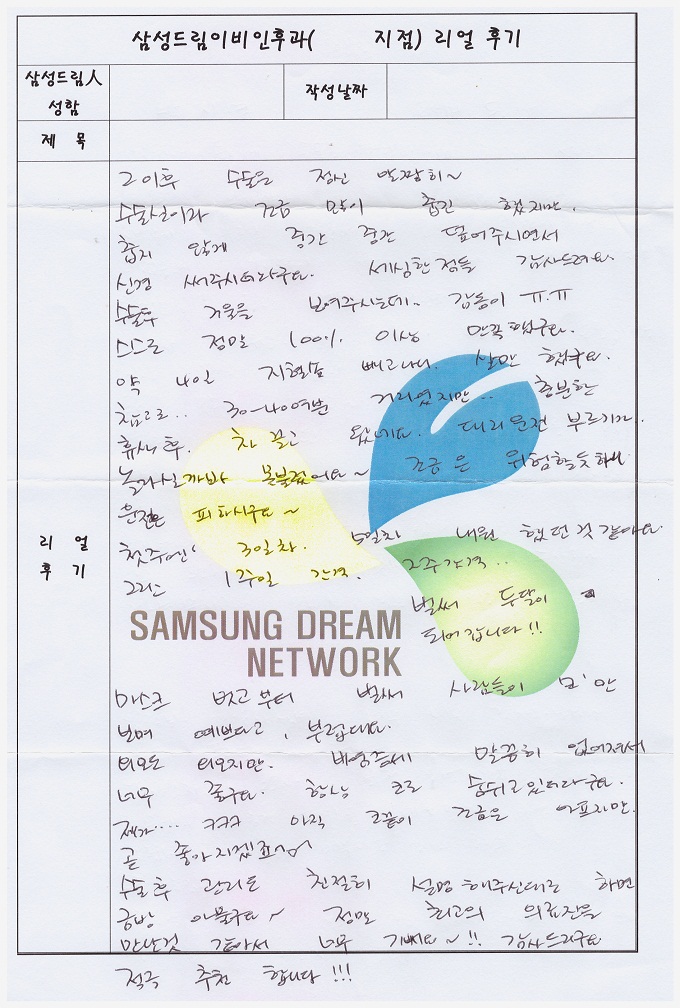 삼성드림이비인후과(      지점) 리얼 후기
삼성드림人
성함
작성날짜
제 목
리 얼
후 기
그이후 수술은 정신 말짱히~
수술실이라 조금 많이 춥긴 했지만.
춥지 않게 중간 중간 덮어주시면서
신경 써주시더라구요. 세심한점들 감사드려요.
수술후 거울을 보여주시는데.. 감동이 ㅠ.ㅠ
스스로 정말 100% 이상 만족했구요.
약 4일 지혈솜 빼고나니. 살만 했구요.
참고로.. 30-40여분 거리였지만.. 충분한
휴식 후. 차 끌고 왔네요. 대리운전 부르기가.
놀라실까봐 못불렀어요~ 조금은 위험할듯하니
운전은 피하시구요~
첫주엔 3일차. 5일차 내원 했던것 같아요.
그리고 1주일 간격. 2주간격..
벌써 두달이
되어갑니다!!
SAMSUNG DREAM
NETWORK
마스크 벗고부터 벌써 사람들이 코만
보며 예쁘다고, 부럽대요.
외모도 외모지만. 비염증세 말끔히 없어져서
너무 좋구요. 항상 코로 숨쉬고있더라구요.
제가.... ㅋㅋㅋ 아직 코끝이 조금은 아프지만.
곧 좋아지겠죠~
수술후 관리도 친절히 설명해주신대로 하면
금방 아물구요~ 정말 최고의 의료진을
만난것 같아서 너무 기뻐요~!! 감사드리구요
적극 추천 합니다!!!